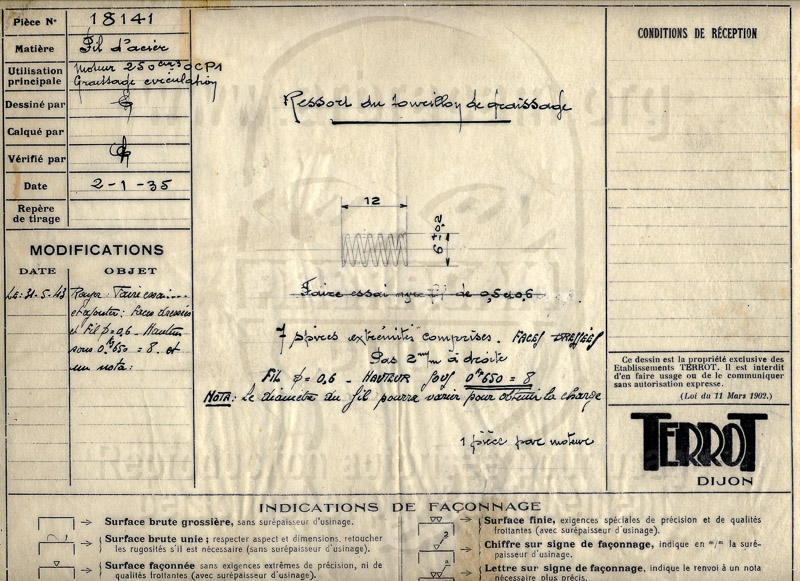 Pièce N° 18141
Matière Fil d'acier
Utilisation principale Moteur 250 cm3 OCP1
Graissage circulation
Dessiné par
Calqué par
Vérifié par
Date 2-1-35
Repère de tirage
MODIFICATIONS
DATE OBJET
Le: 31-5-43 Rayer: Faire essai....
et ajouter: Faces dressées
et Fil φ=0,6 - Hauteur
sous 0k650 = 8. et
un nota:
Ressort du tourillon de graissage
12
6
Faire essai avec fil de 0,5 et 0,6
7 spires extrémités comprises. FACES DRESSÉES
Pas 2m/m à droite
FIL φ = 0,6 - HAUTEUR SOUS 0k650 = 8
NOTA: Le diamètre du fil pourra varier pour obtenir la charge
1 pièce par moteur
CONDITIONS DE RÉCEPTION
Ce dessin est la propriété exclusive des
Etablissements TERROT. Il est interdit
d'en faire usage ou de le communiquer
sans autorisation expresse.
(Loi du 11 Mars 1902.)
TERROT
DIJON
INDICATIONS DE FAÇONNAGE
Surface brute grossière, sans surépaisseur d'usinage.
Surface brute unie; respecter aspect et dimensions, retoucher
les rugosités s'il est nécessaire (sans surépaisseur d'usinage).
Surface façonnée sans exigences extrêmes de précision, ni de
qualités frottantes (avec surépaisseur d'usinage).
Surface finie, exigences spéciales de précision et de qualités
frottantes (avec surépaisseur d'usinage).
Chiffre sur signe de façonnage, indique en m/m la suré-
paisseur d'usinage.
Lettre sur signe de façonnage, indique le renvoi à un nota
nécessaire plus précis.